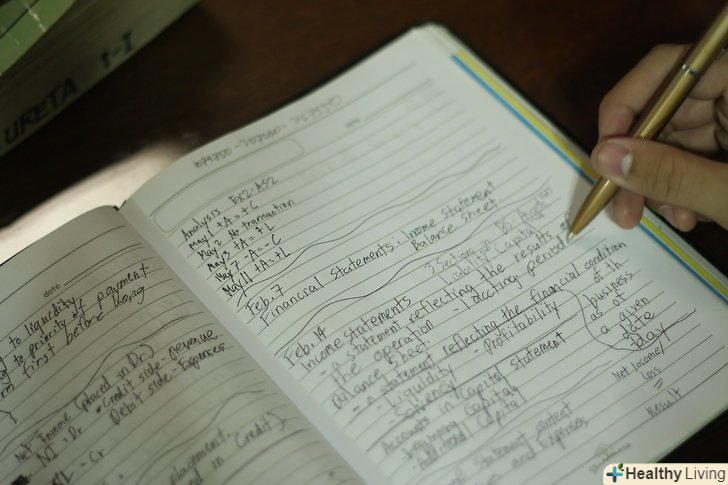 URETA 1-I
date
to liquidity
to priority of payment
first before long
Net Income (placed in Dr)
NI = Dr
• Credit side - Revenue
Debit side - Expenses
NL = Cr
Analysis Ex2-AS2
May 1 +A = +C
May 2 No transaction
May 3 +A = +L
May 7 -A = -C
May 11 +A = +L
Feb. 7
Financial statements. Income statement
Balance sheet
3 Section in BS Assets
Liability Capital
Feb. 14
Income statements
- a statement reflecting the results of
the operation - 1 acctng. period
Balance Sheet
- a statement reflecting the financial condition
of th
business
as of
a given
date
day
- Liquidity - Profitability
Solvency
Accounts in Capital statement
Beginning capital
Additional Capital
Net Income/
Loss
=
Result
statement content
and Expenses
Healthy Living